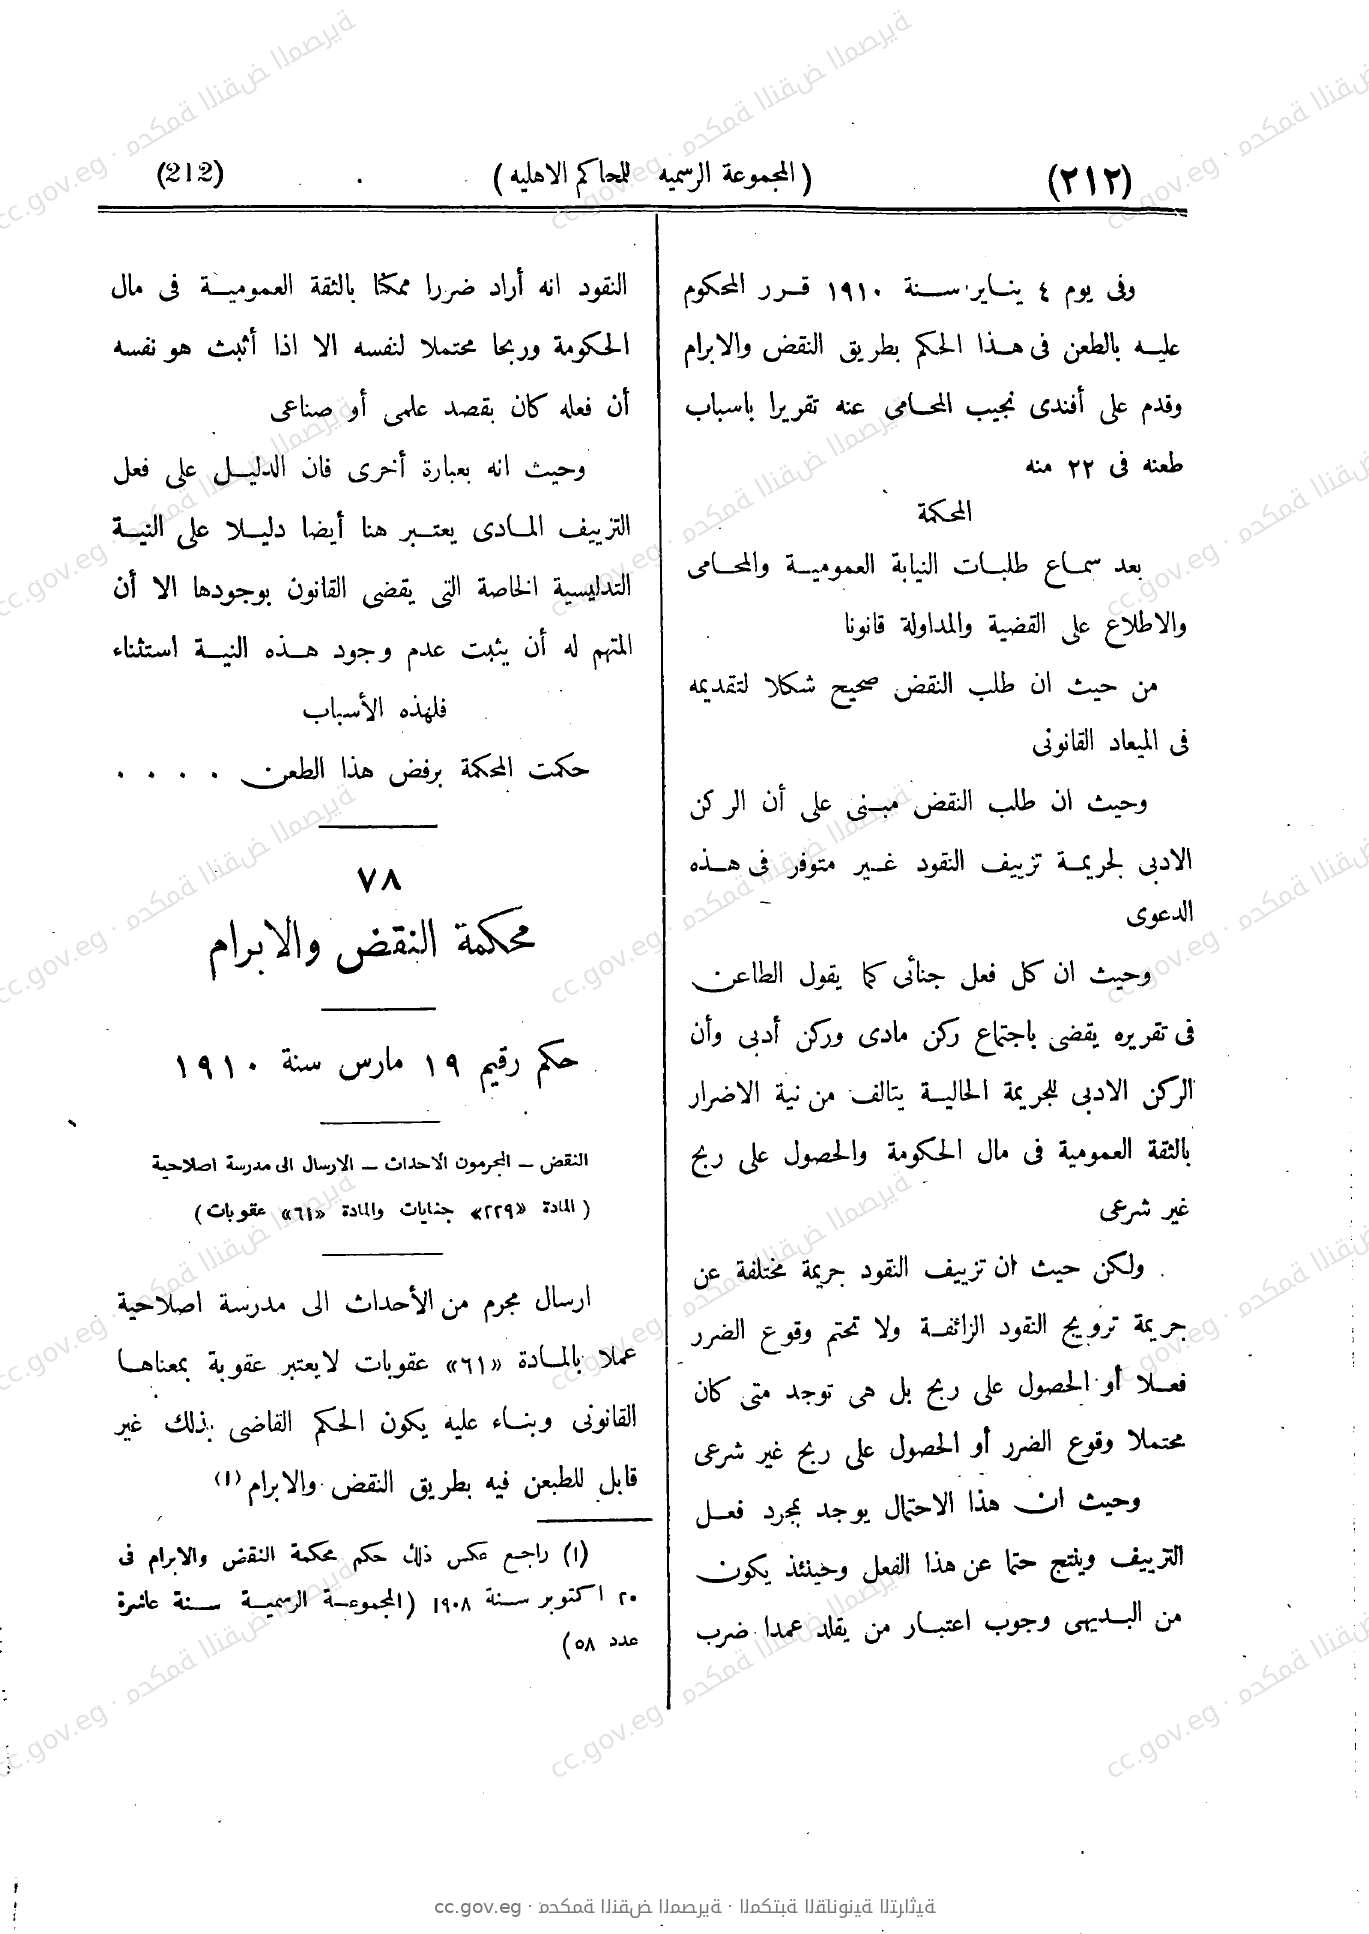 (٢١٢)
( المجموعة الرسميه للمحاكم الاهليه )
(212)
وفى يوم ٤ يناير سنة ١٩١٠ قرر المحكوم
عليه بالطعن فى هذا الحكم بطريق النقض والابرام
وقدم على أفندى نجيب المحامى عنه تقريرا باسباب
طعنه فى ٢٢ منه
المحكمة
بعد سماع طلبات النيابة العمومية والمحامى
والاطلاع على القضية والمداولة قانونا
من حيث ان طلب النقض صحيح شكلا لتقديمه
فى الميعاد القانونى
وحيث ان طلب النقض مبنى على أن الركن
الادبى لجريمة تزييف النقود غير متوفر فى هذه
الدعوى
وحيث ان كل فعل جنائى كما يقول الطاعن
فى تقريره يقضى باجتماع ركن مادى وركن أدبى وأن
الركن الادبى للجريمة الحالية يتالف من نية الاضرار
بالثقة العمومية فى مال الحكومة والحصول على ربح
غير شرعى
ولكن حيث ان تزييف النقود جريمة مختلفة عن
جريمة ترويج النقود الزائفة ولا تحتم وقوع الضرر
فعلا أو الحصول على ربح بل هى توجد متى كان
محتملا وقوع الضرر أو الحصول على ربح غير شرعى
وحيث ان هذا الاحتمال يوجد بمجرد فعل
التزييف وينتج حتما عن هذا الفعل وحينئذ يكون
من البديهى وجوب اعتبار من يقلد عمدا ضرب
النقود انه أراد ضررا ممكنا بالثقة العمومية فى مال
الحكومة وربحا محتملا لنفسه الا اذا أثبت هو نفسه
أن فعله كان بقصد علمى أو صناعى
وحيث انه بعبارة أخرى فان الدليل على فعل
التزييف المادى يعتبر هنا أيضا دليلا على النية
التدليسية الخاصة التى يقضى القانون بوجودها الا أن
المتهم له أن يثبت عدم وجود هذه النية استثناء
فلهذه الأسباب
حكمت المحكمة برفض هذا الطعن . . . .
٧٨
محكمة النقض والابرام
حكم رقيم ١٩ مارس سنة ١٩١٠
النقض – المجرمون الاحداث – الارسال الى مدرسة اصلاحية
( المادة «٢٢٩» جنايات والمادة «٦١» عقوبات )
ارسال مجرم من الأحداث الى مدرسة اصلاحية
عملا بالمادة «٦١» عقوبات لا يعتبر عقوبة بمعناها
القانونى وبناء عليه يكون الحكم القاضى بذلك غير
قابل للطعن فيه بطريق النقض والابرام (١)
(١) راجع عكس ذلك حكم محكمة النقض والابرام فى
٢٠ اكتوبر سنة ١٩٠٨ (المجموعة الرسمية سنة عاشرة
عدد ٥٨)
cc.gov.eg · محكمة النقض المصرية · المكتبة القانونية التراثية